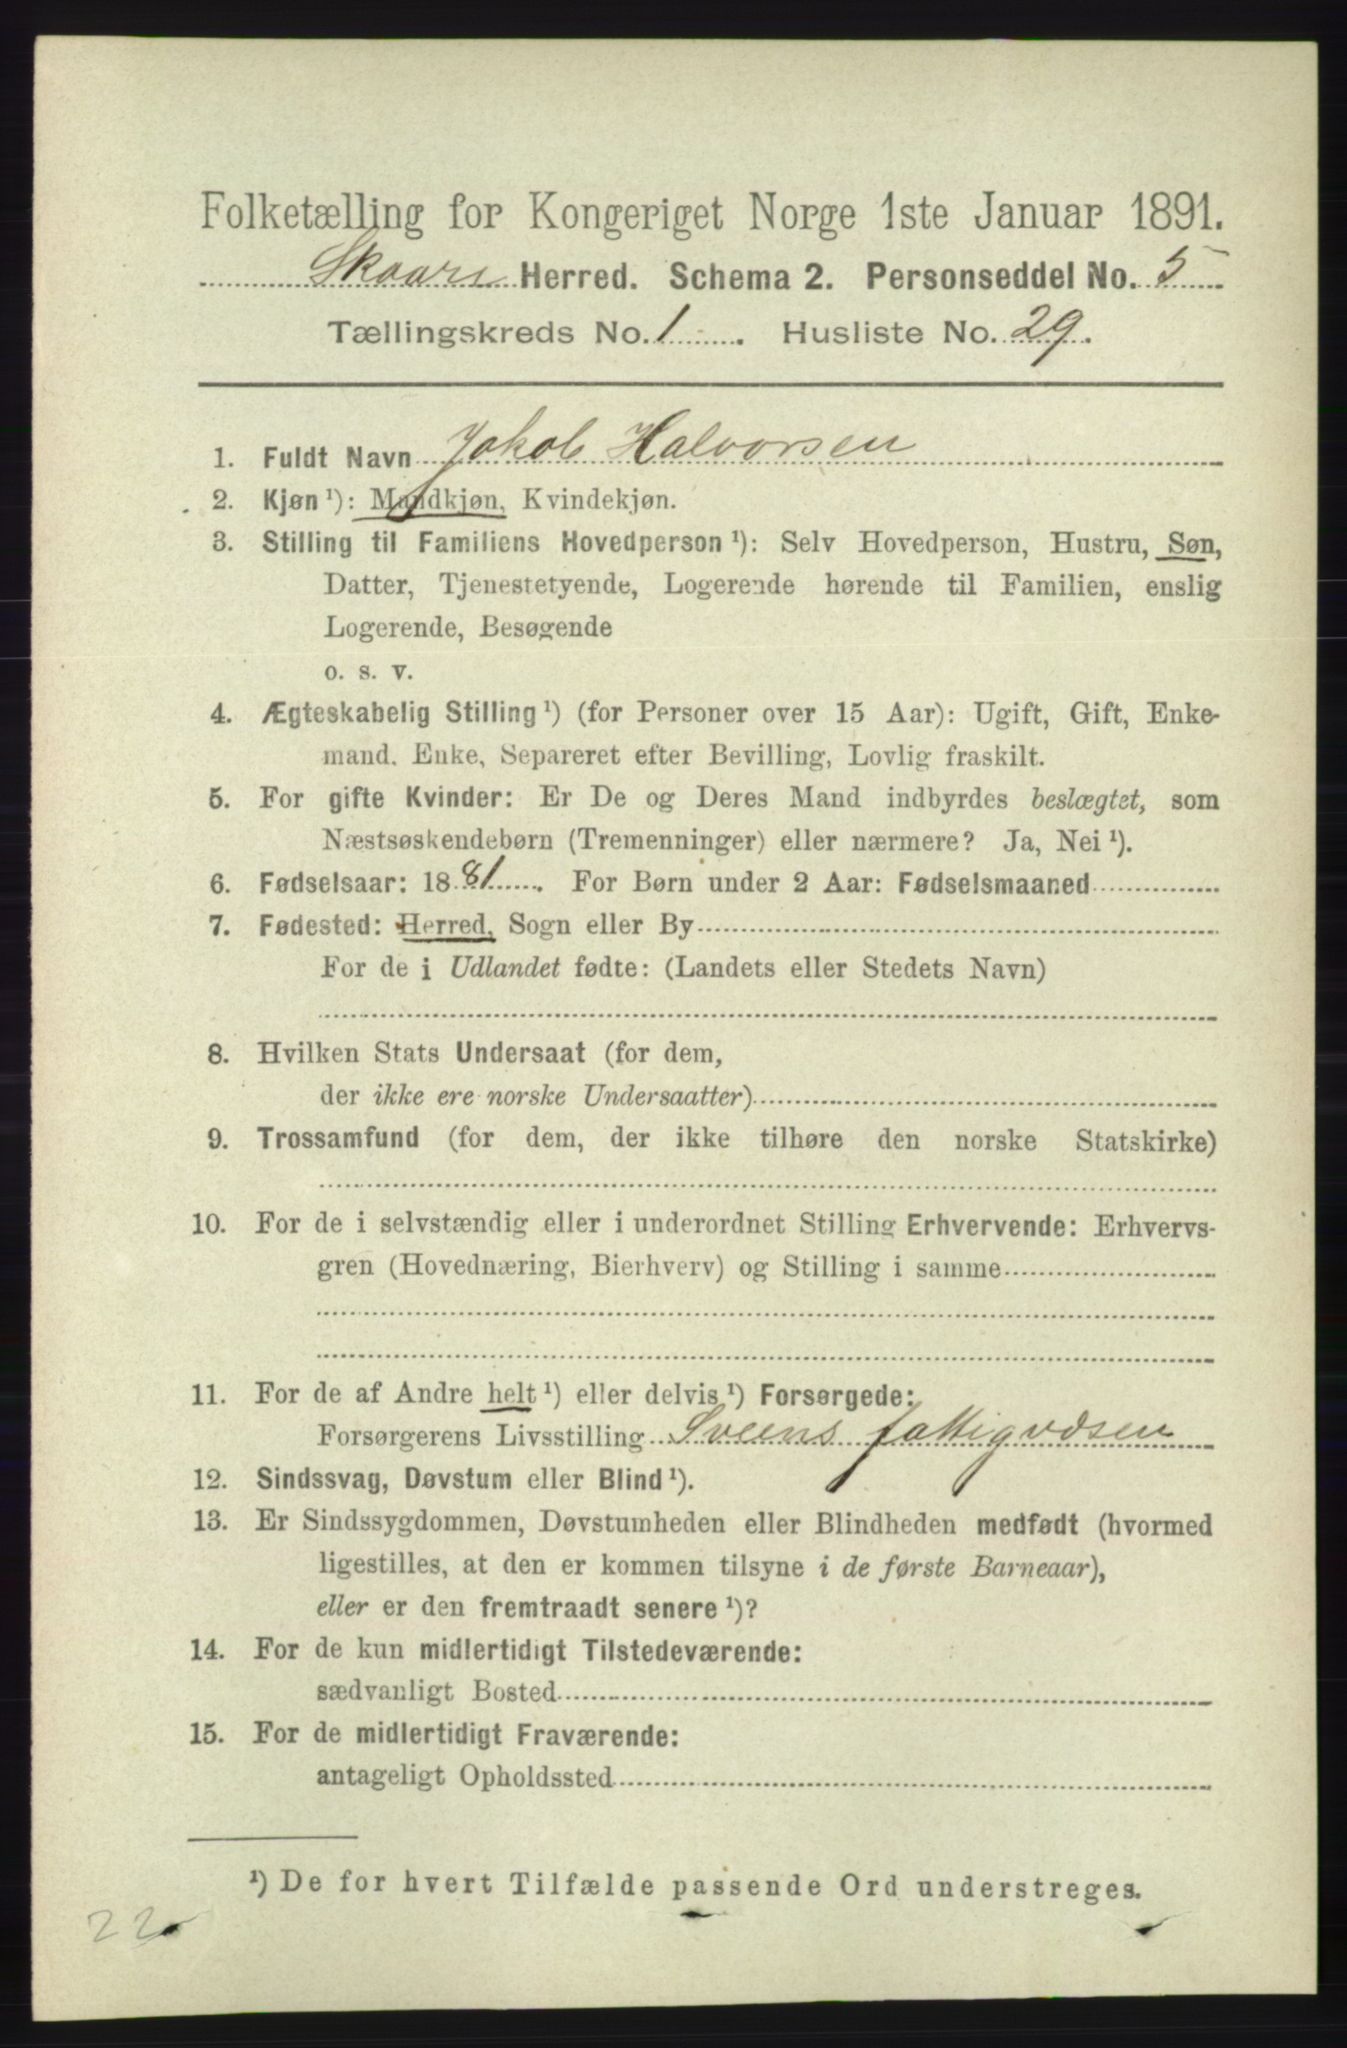 Folketælling for Kongeriget Norge 1ste Januar 1891.
Skaare Herred. Schema 2. Personseddel No. 5
Tællingskreds No. 1. Husliste No. 29.
1. Fuldt Navn Jakob Halvorsen
2. Kjøn ¹): Mandkjøn, Kvindekjøn.
3. Stilling til Familiens Hovedperson ¹): Selv Hovedperson, Hustru, Søn,
Datter, Tjenestetyende, Logerende hørende til Familien, enslig
Logerende, Besøgende
o. s. v.
4. Ægteskabelig Stilling ¹) (for Personer over 15 Aar): Ugift, Gift, Enke-
mand. Enke, Separeret efter Bevilling, Lovlig fraskilt.
5. For gifte Kvinder: Er De og Deres Mand indbyrdes beslægtet, som
Næstsøskendebørn (Tremenninger) eller nærmere? Ja, Nei ¹).
6. Fødselsaar: 1881. For Børn under 2 Aar: Fødselsmaaned
7. Fødested: Herred, Sogn eller By
For de i Udlandet fødte: (Landets eller Stedets Navn)
8. Hvilken Stats Undersaat (for dem,
der ikke ere norske Undersaatter)
9. Trossamfund (for dem, der ikke tilhøre den norske Statskirke)
10. For de i selvstændig eller i underordnet Stilling Erhvervende: Erhvervs-
gren (Hovednæring, Bierhverv) og Stilling i samme
11. For de af Andre helt ¹) eller delvis ¹) Forsørgede:
Forsørgerens Livsstilling Sveens fattigvæsen
12. Sindssvag, Døvstum eller Blind ¹).
13. Er Sindssygdommen, Døvstumheden eller Blindheden medfødt (hvormed
ligestilles, at den er kommen tilsyne i de første Barneaar),
eller er den fremtraadt senere ¹)?
14. For de kun midlertidigt Tilstedeværende:
sædvanligt Bosted
15. For de midlertidigt Fraværende:
antageligt Opholdssted
¹) De for hvert Tilfælde passende Ord understreges.
22